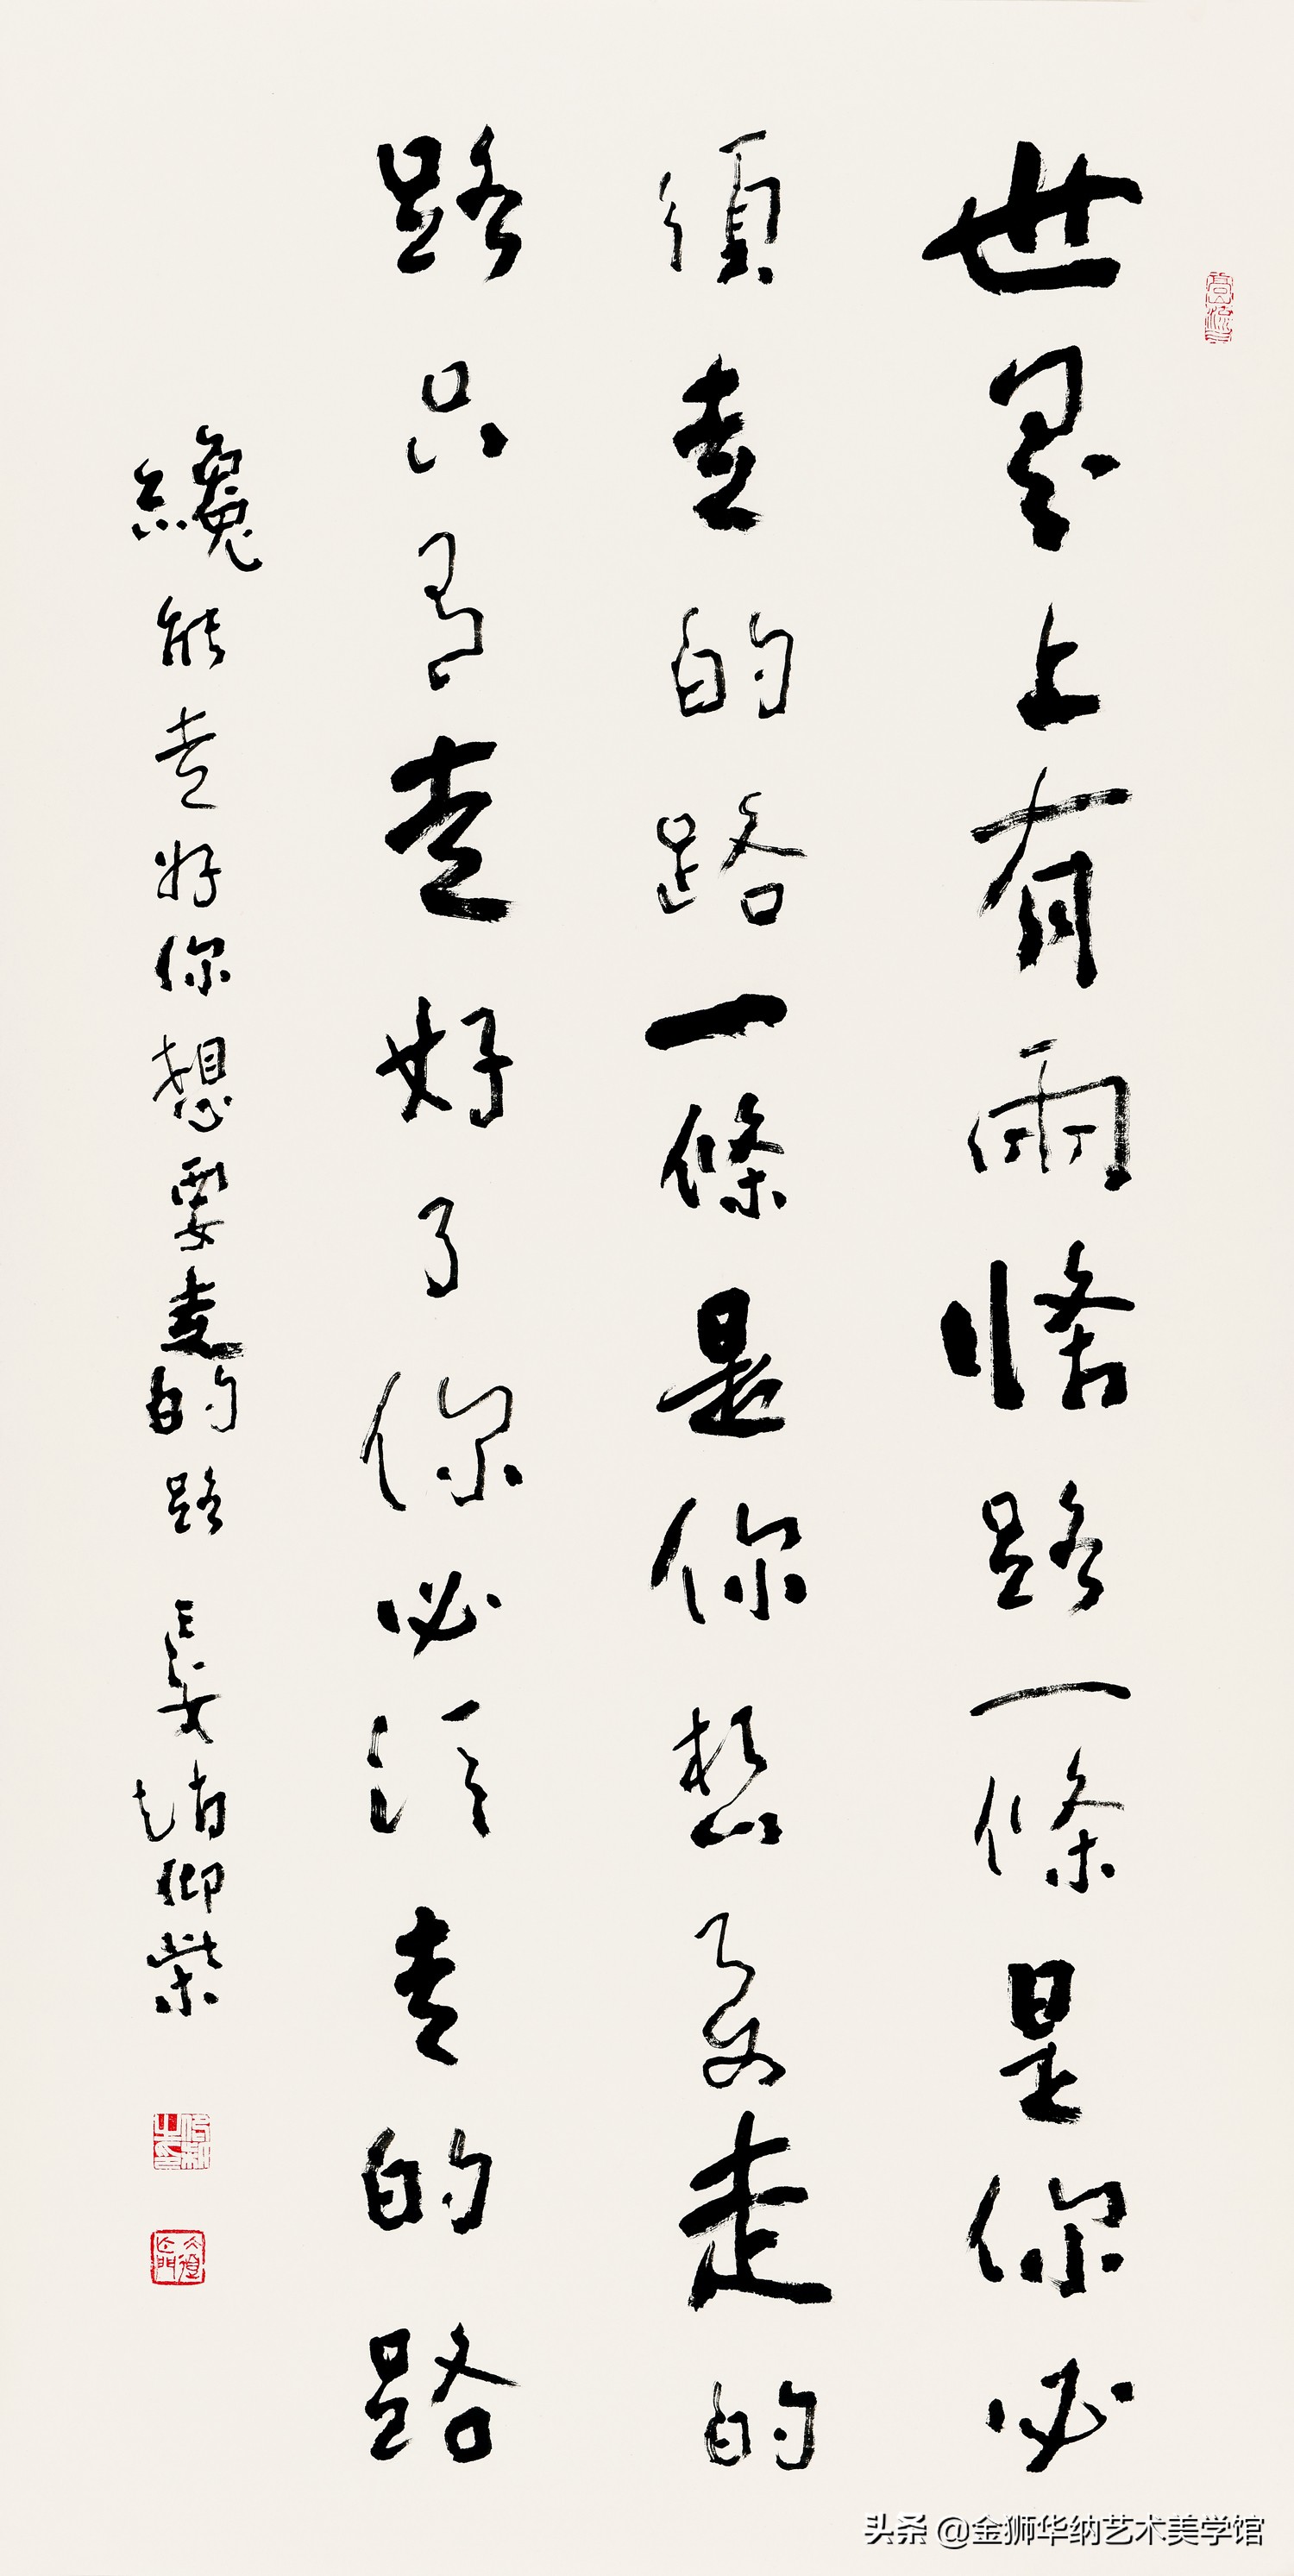 世界上有兩條路一條是你必
須走的路一條是你想要走的
路只有走好了你必須走的路
纔能走好你想要走的路 長安趙仰
头条 @金狮华纳艺术美学馆